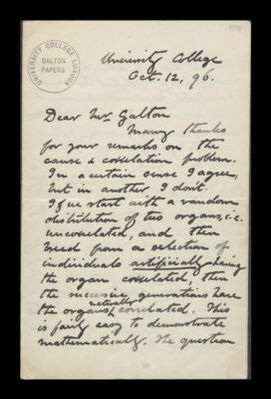 UNIVERSITY COLLEGE LONDON
GALTON
PAPERS
University College
Oct. 12, 96.
Dear Mr Galton
Many thanks
for your remarks on the
cause & correlation problem.
In a certain sense I agree,
but in another I don't.
If we start with a random
distribution of two organs, i.e.
uncorrelated, and then
breed from a selection of
individuals artificially having
the organ correlated, then
the successive generations have
the organs naturally correlated. This
is fairly easy to demonstrate
mathematically. The question